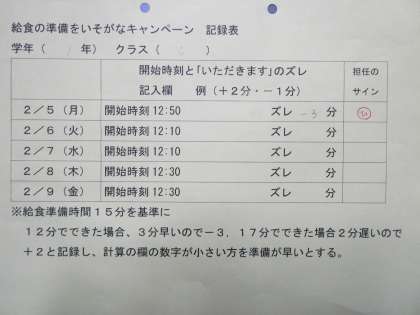 給食の準備をいそがなキャンペーン 記録表
学年( 年) クラス( )
開始時刻と「いただきます」のズレ 担任の
記入欄 例(+2分・-1分) サイン
2/5(月) 開始時刻12:50 ズレ -3 分
2/6(火) 開始時刻12:10 ズレ 分
2/7(水) 開始時刻12:10 ズレ 分
2/8(木) 開始時刻12:30 ズレ 分
2/9(金) 開始時刻12:30 ズレ 分
※給食準備時間15分を基準に
12分でできた場合、3分早いので-3.17分でできた場合2分遅いので
+2と記録し、計算の欄の数字が小さい方を準備が早いとする。